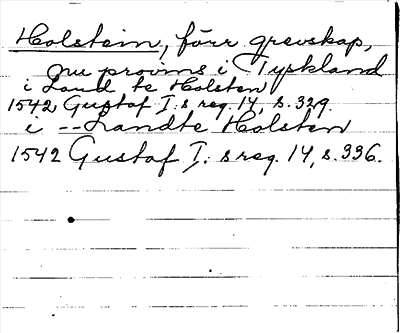 Holstein, förr grevskap,
nu provins i Tyskland
i Land te Holsten
1542 Gustaf I:s reg. 14, s. 329.
i -- Landte Holsten
1542 Gustaf I. s reg. 14, s. 336.